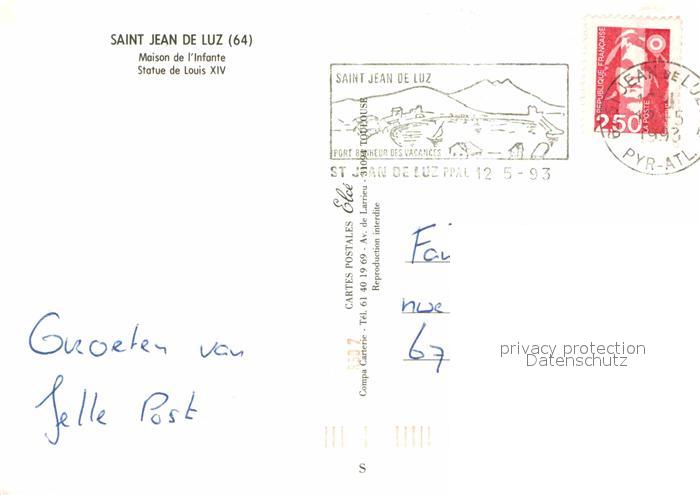 SAINT JEAN DE LUZ (64)
Maison de l'Infante
Statue de Louis XIV
SAINT JEAN DE LUZ
PORT BONHEUR DES VACANCES
ST JEAN DE LUZ PPAL 12 5 - 93
RÉPUBLIQUE FRANÇAISE
2,50
LA POSTE
ST JEAN DE LUZ
1993
PYR-ATL.
CARTES POSTALES Elcé
Compa Carterie - Tél. 61 40 19 69 - Av. de Larrieu - 31094 TOULOUSE
Reproduction interdite
Groeten van
Jelle Post
Fai
nue
67
privacy protection
Datenschutz
S